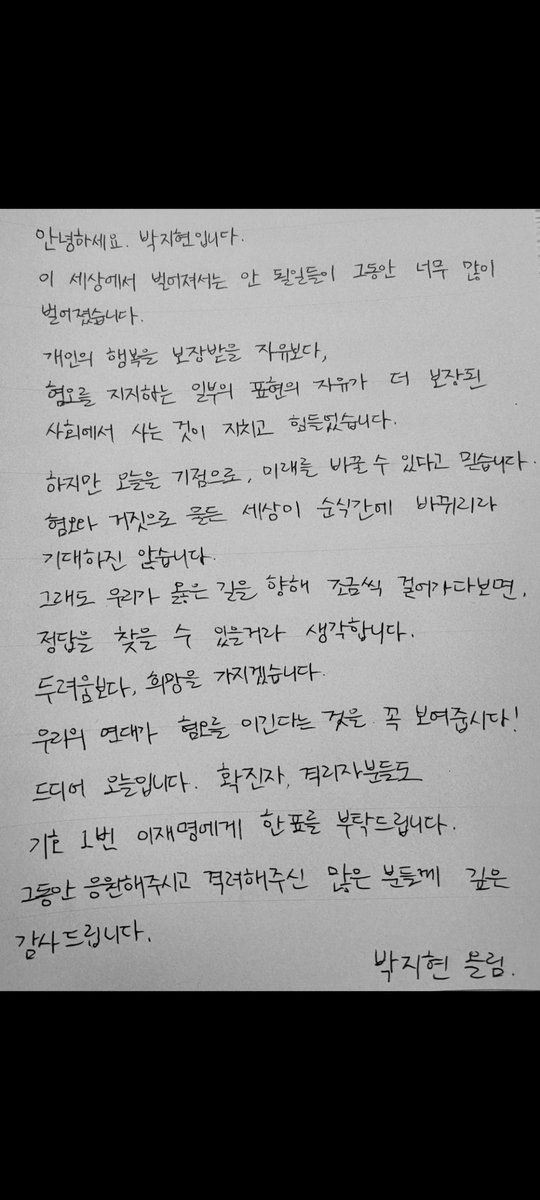 안녕하세요. 박지현입니다.
이 세상에서 벌어져서는 안 될일들이 그동안 너무 많이
벌어졌습니다.
개인의 행복을 보장받을 자유보다,
혐오를 지지하는 일부의 표현의 자유가 더 보장된
사회에서 사는 것이 지치고 힘들었습니다.
하지만 오늘을 기점으로, 미래를 바꿀 수 있다고 믿습니다.
혐오와 거짓으로 물든 세상이 순식간에 바뀌리라
기대하진 않습니다.
그래도 우리가 옳은 길을 향해 조금씩 걸어가다보면,
정답을 찾을 수 있을거라 생각합니다.
두려움보다, 희망을 가지겠습니다.
우리의 연대가 혐오를 이긴다는 것을 꼭 보여줍시다!
드디어 오늘입니다. 확진자, 격리자분들도
기호 1번 이재명에게 한표를 부탁드립니다.
그동안 응원해주시고 격려해주신 많은 분들께 깊은
감사드립니다.
박지현 올림.